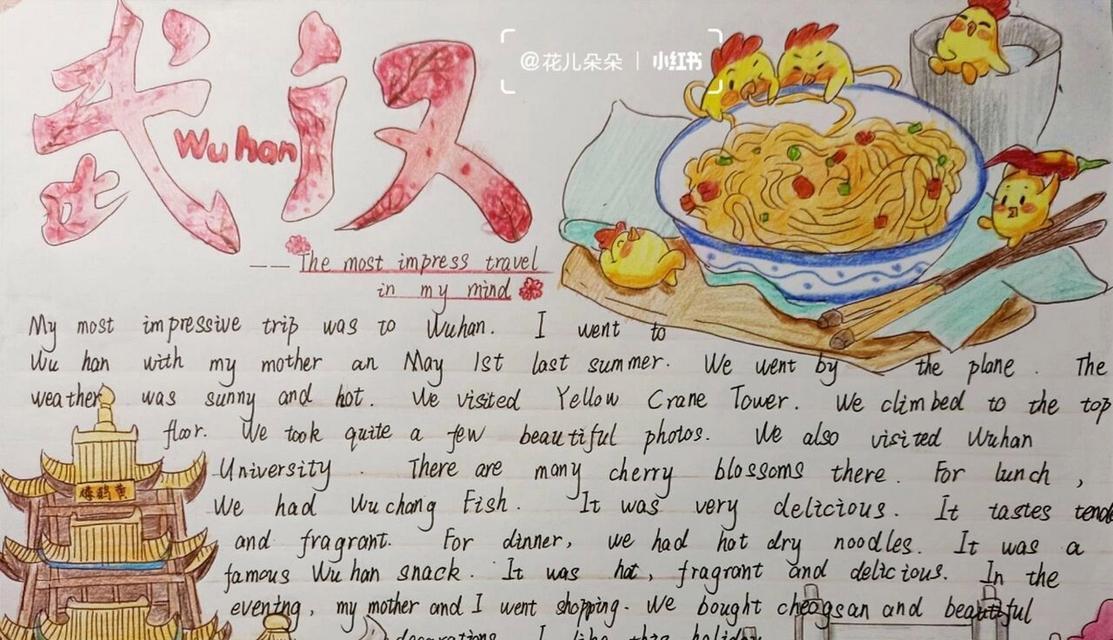 武汉
Wuhan
@花儿朵朵 | 小红书
—— The most impress travel
in my mind
My most impressive trip was to Wuhan. I went to
Wu han with my mother an May 1st last summer. We went by the plane. The
weather was sunny and hot. We visited Yellow Crane Tower. We climbed to the top
floor. We took quite a few beautiful photos. We also visited Wuhan
University. There are many cherry blossoms there. For lunch,
We had Wuchang Fish. It was very delicious. It tastes tende
and fragrant. For dinner, we had hot dry noodles. It was a
famous Wuhan snack. It was hot, fragrant and delicious. In the
evening, my mother and I went shopping. We bought and beautiful
decorations. I like this holiday.
黄鹤楼